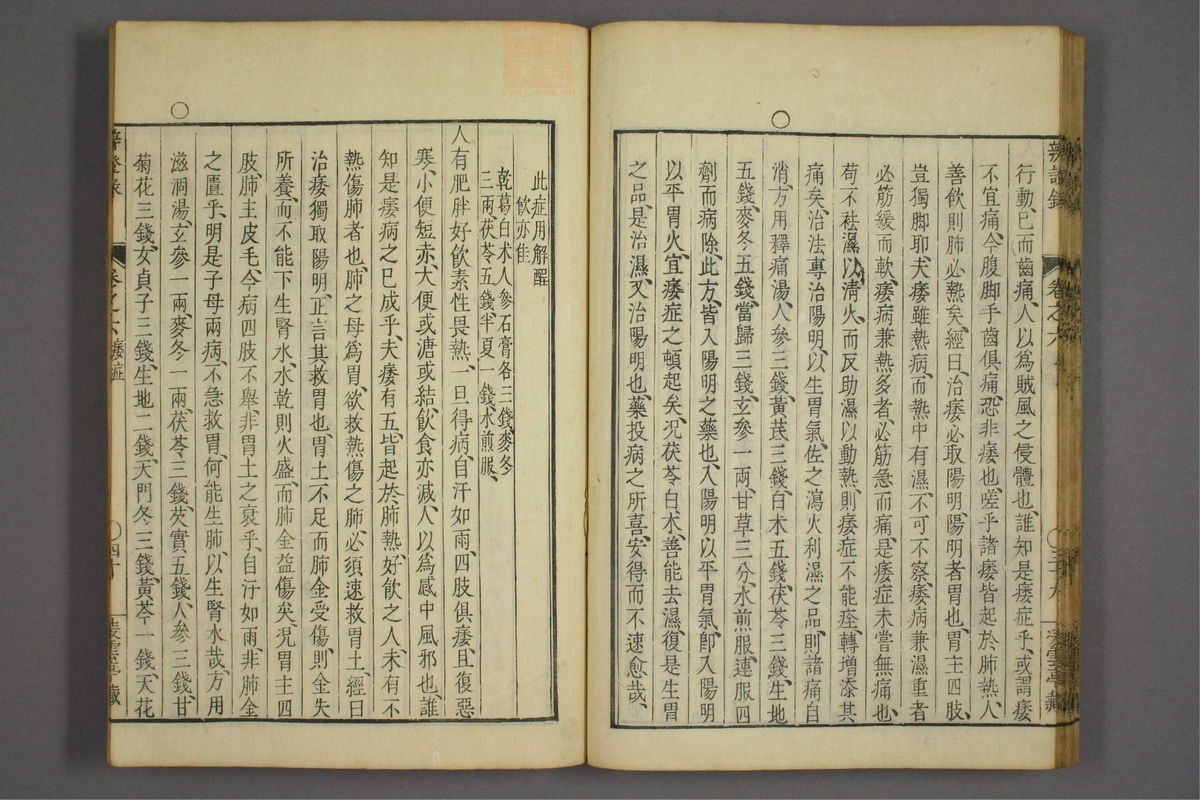 辨證錄
卷之六
三十九
藏
行動已而齒痛人以為賊風之侵體也誰知是痿症乎或謂痿
不宜痛今腹脚手齒俱痛恐非痿也嗟乎諸痿皆起於肺熱人
善飲則肺必熱矣經曰治痿必取陽明陽明者胃也胃主四肢
豈獨脚耶夫痿雖熱病而熱中有濕不可不察痿病兼濕重者
必筋緩而軟痿病兼熱多者必筋急而痛是痿症未嘗無痛也
苟不祛濕以清火而反助濕以動熱則痿症不能痊轉增添其
痛矣治法專治陽明以生胃氣佐之瀉火利濕之品則諸痛自
消方用釋痛湯人參三錢黃芪三錢白朮五錢茯苓三錢生地
五錢麥冬五錢當歸三錢玄參一兩甘草三分水煎服連服四
劑而病除此方皆入陽明之藥也入陽明以平胃氣卽入陽明
以平胃火宜痿症之頓起矣况茯苓白朮善能去濕復是生胃
之品是治濕又治陽明也藥投病之所喜安得而不速愈哉
此症用解酲
飲亦佳
乾葛白朮人參石膏各三錢麥冬
三兩茯苓五錢半夏一錢水煎服
人有肥胖好飲素性畏熱一旦得病自汗如雨四肢俱痿且復惡
寒小便短赤大便或溏或結飲食亦減人以為感中風邪也誰
知是痿病之已成乎夫痿有五皆起於肺熱好飲之人未有不
熱傷肺者也肺之母為胃欲救熱傷之肺必須速救胃土經曰
治痿獨取陽明正言其救胃也胃土不足而肺金受傷則金失
所養而不能下生腎水水乾則火盛而肺金益傷矣况胃主四
肢肺主皮毛今病四肢不舉非胃土之衰乎自汗如雨非肺金
之匱乎明是子母兩病不急救胃何能生肺以生腎水哉方用
滋涸湯玄參一兩麥冬一兩茯苓三錢芡實五錢人參三錢甘
菊花三錢女貞子三錢生地二錢天門冬三錢黃芩一錢天花
辨證錄
卷之六痿症
四十
藏